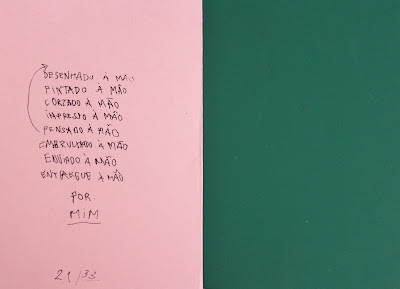 DESENHADO À MÃO
PINTADO À MÃO
CORTADO À MÃO
IMPRESSO À MÃO
PENSADO À MÃO
EMBRULHADO À MÃO
ENVIADO À MÃO
ENTREGUE À MÃO
POR:
MIM
21/33